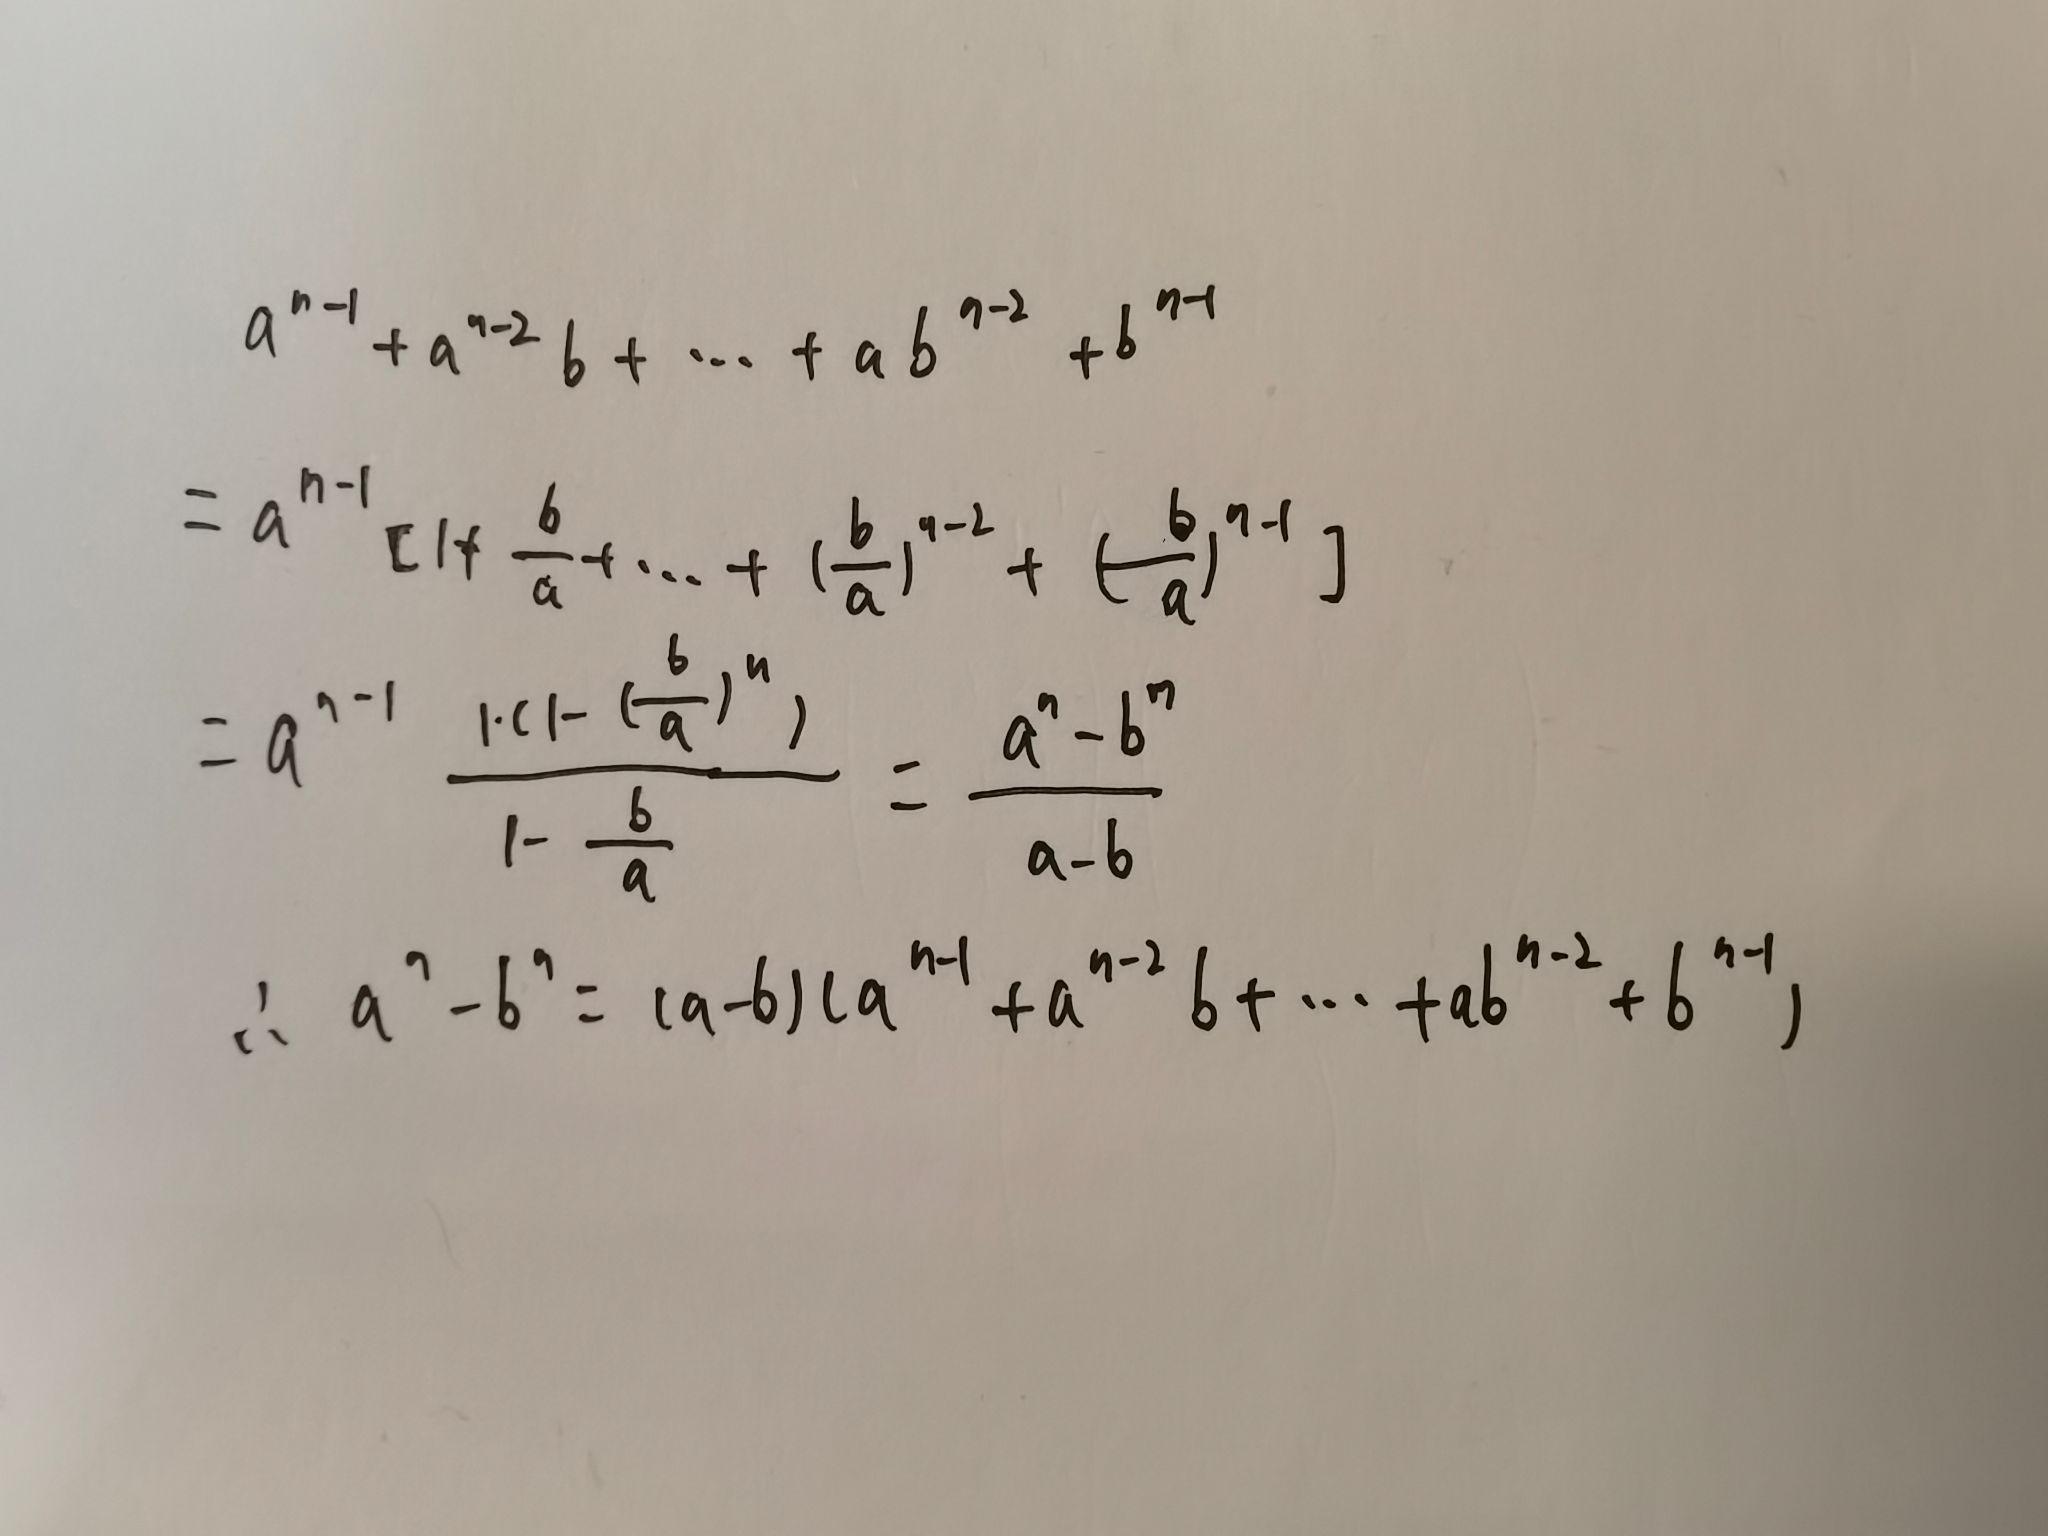 a^{n-1} + a^{n-2} b + ... + a b^{n-2} + b^{n-1}
= a^{n-1} [1 + \frac{b}{a} + ... + (\frac{b}{a})^{n-2} + (\frac{b}{a})^{n-1}]
= a^{n-1} \frac{1·(1-(\frac{b}{a})^n)}{1-\frac{b}{a}} = \frac{a^n-b^n}{a-b}
∴ a^n - b^n = (a-b)(a^{n-1} + a^{n-2} b + ... + ab^{n-2} + b^{n-1})